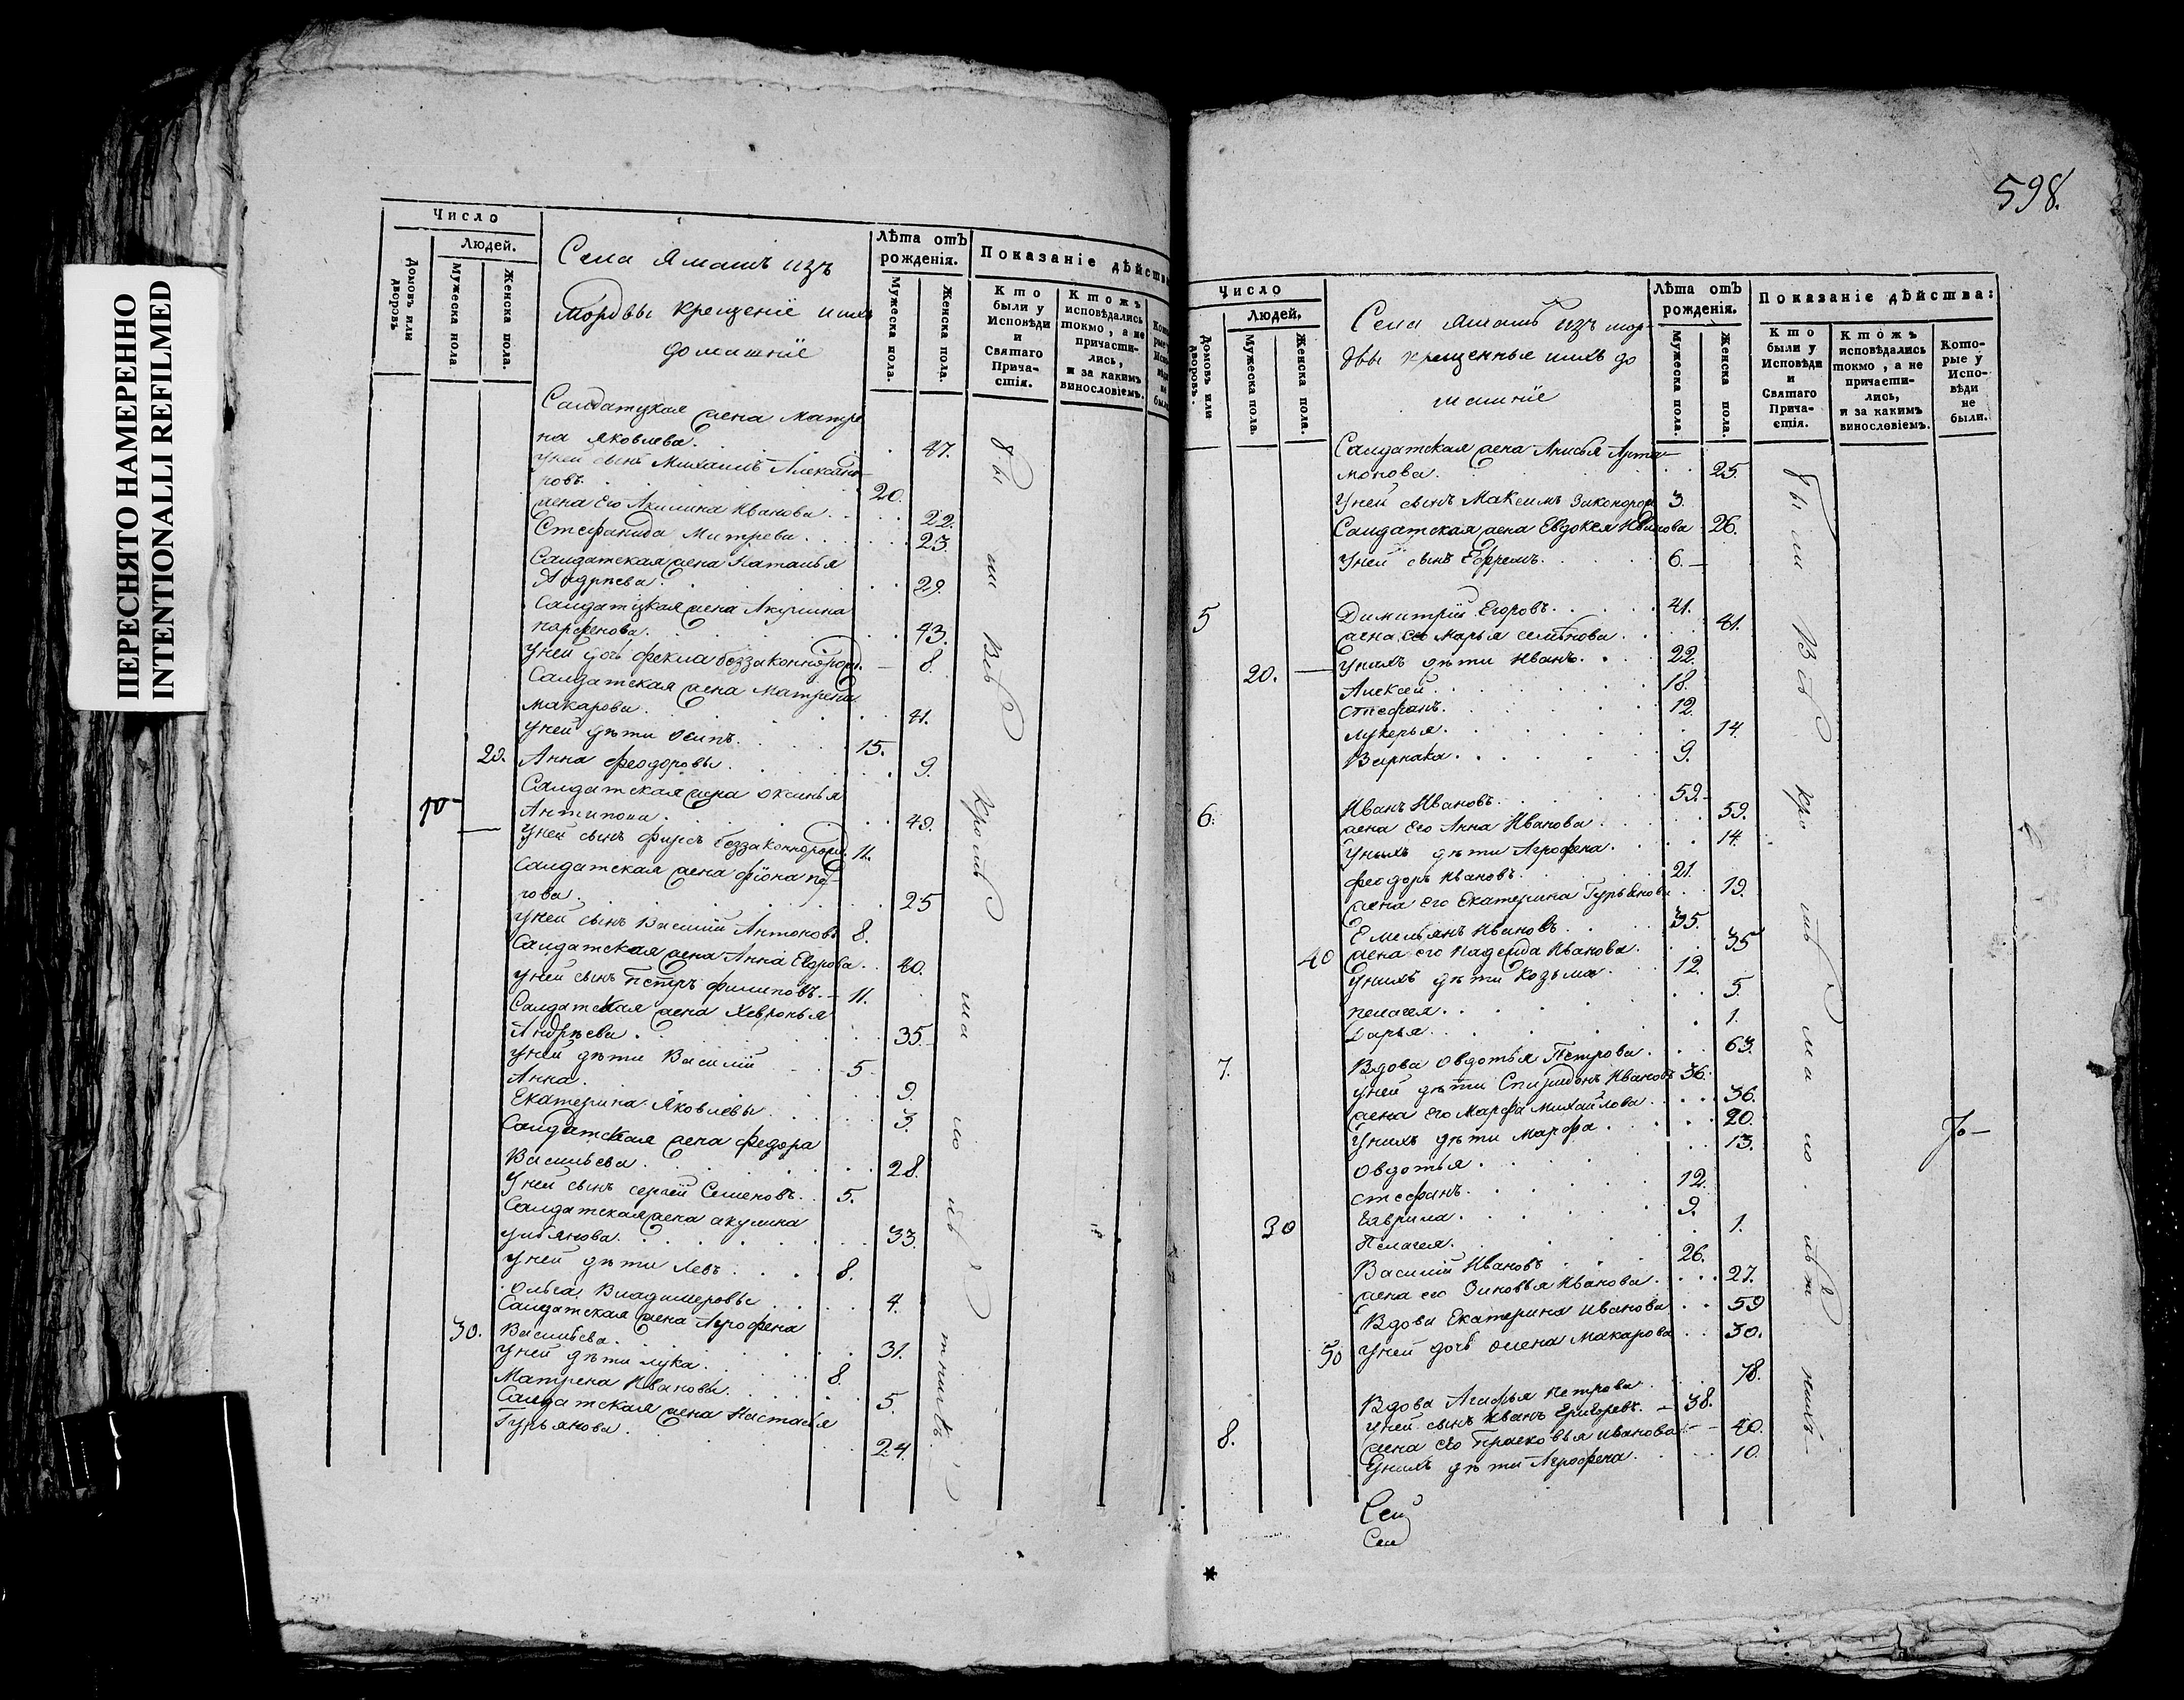 ПЕРЕСНЯТО НАМЕРЕННО
INTENTIONALLI REFILMED
Число
Людей.
Домовъ или дворовъ
Мужеска пола.
Женска пола.
Села Ямашъ изъ
Мордвы крещеніе ихъ
домашніе
Лѣта отъ
рожденія.
Мужеска пола.
Женска пола.
Показаніе дѣйства
Кто
были у
Исповѣди
и
Святаго
Прича-
стія.
Ктожъ
исповѣдались
токмо, а не
причасти-
лись,
и за какимъ
винословіемъ.
Салдатцкая жена Матре
на Яковлева. 47.
Уней сынъ Михаилъ Александ-
ровъ. 20.
жена Его Акилина Иванова. 22.
Стефанида Митрева. 23.
Салдатская жена Наталья
Андрѣева. 29.
Салдатцкая жена Акулина
парфенова. 43.
Уней дочь фекла беззаконнорожд. 8.
Салдатская жена Матрена
макарова. 41.
Уней дѣти осипъ. 15.
20. Анна феодоровы. 9.
Салдатская жена оксинья
10 Антипова. 49.
Уней сынъ фирсъ беззаконнорожд. 11.
Салдатская жена фіона пе-
трова. 25
Уней сынъ Василій Антоновъ 8.
Салдатская жена Анна Егорова. 40.
Уней сынъ Петръ филиповъ. 11.
Салдатская жена Хевронья
Андрѣева. 35.
Уней дѣти Василій 5
Анна. 9.
Екатерина Яковлевы. 3.
Салдатская жена федора
Васильева. 28.
Уней сынъ сергей Семеновъ. 5.
Салдатская жена акулина
ульянова. 33.
Уней дѣти Левъ. 8.
Ольга Владимеровы. 4.
Салдатская жена Агрофена
30. Васильева. 31.
Уней дѣти лука. 8
Матрена Ивановы. 5.
Салдатская жена Настасья
Гурьянова. 24.
были Всѣ кромѣ малолѣтнихъ.
598.
Число
Людей.
Домовъ или дворовъ.
Мужеска пола.
Женска пола.
Села Ямашъ изъ мор-
двы крещенные ихъ до
машніе
Лѣта отъ
рожденія.
Мужеска пола.
Женска пола.
Показаніе дѣйства:
Кто
были у
Исповѣди
и
Святаго
Прича-
стія.
Ктожъ
исповѣдались
токмо, а не
причасти-
лись,
и за какимъ
винословіемъ.
Кото-
рые у
Испо-
вѣди
не
были.
Салдатская жена Анисья Арта-
монова. 25.
Уней сынъ Максимъ 3.
Салдатская жена Евдокея Иванова 26.
Уней сынъ Ефремъ. 6.
5 Димитрій Егоровъ. 41.
жена его Марья семенова. 41.
20. Унихъ дѣти Иванъ. 22.
Алексей. 18.
стефанъ. 12.
лукерья. 14.
9.
6. Иванъ Ивановъ. 59.
жена Его Анна Иванова. 59.
Унихъ дѣти Агрофена. 14.
феодоръ Ивановъ. 21.
жена его Екатерина Гурьянова. 19.
Емельянъ Ивановъ. 35.
40 жена его Надежда Иванова. 35
Унихъ дѣти Козьма. 12.
пелагея. 5.
Дарья. 1.
7. Вдова овдотья Петрова. 63.
уней дѣти Спиридонъ Ивановъ 36.
жена его Марфа Михайлова. 36.
Унихъ дѣти Марфа. 20.
овдотья. 13.
стефанъ. 12.
30 Гаврила. 9.
Пелагея. 1.
Василій Ивановъ 26.
жена его Зиновья Иванова. 27.
Вдова Екатерина иванова. 59
50 Уней дочь олена Макарова. 30.
8. Вдова Агафья петрова. 78.
Уней сынъ Иванъ Григорьевъ. 38.
жена его Прасковья иванова 40.
Унихъ дѣти Агрофена. 10.
были Всѣ кромѣ малолѣтнихъ